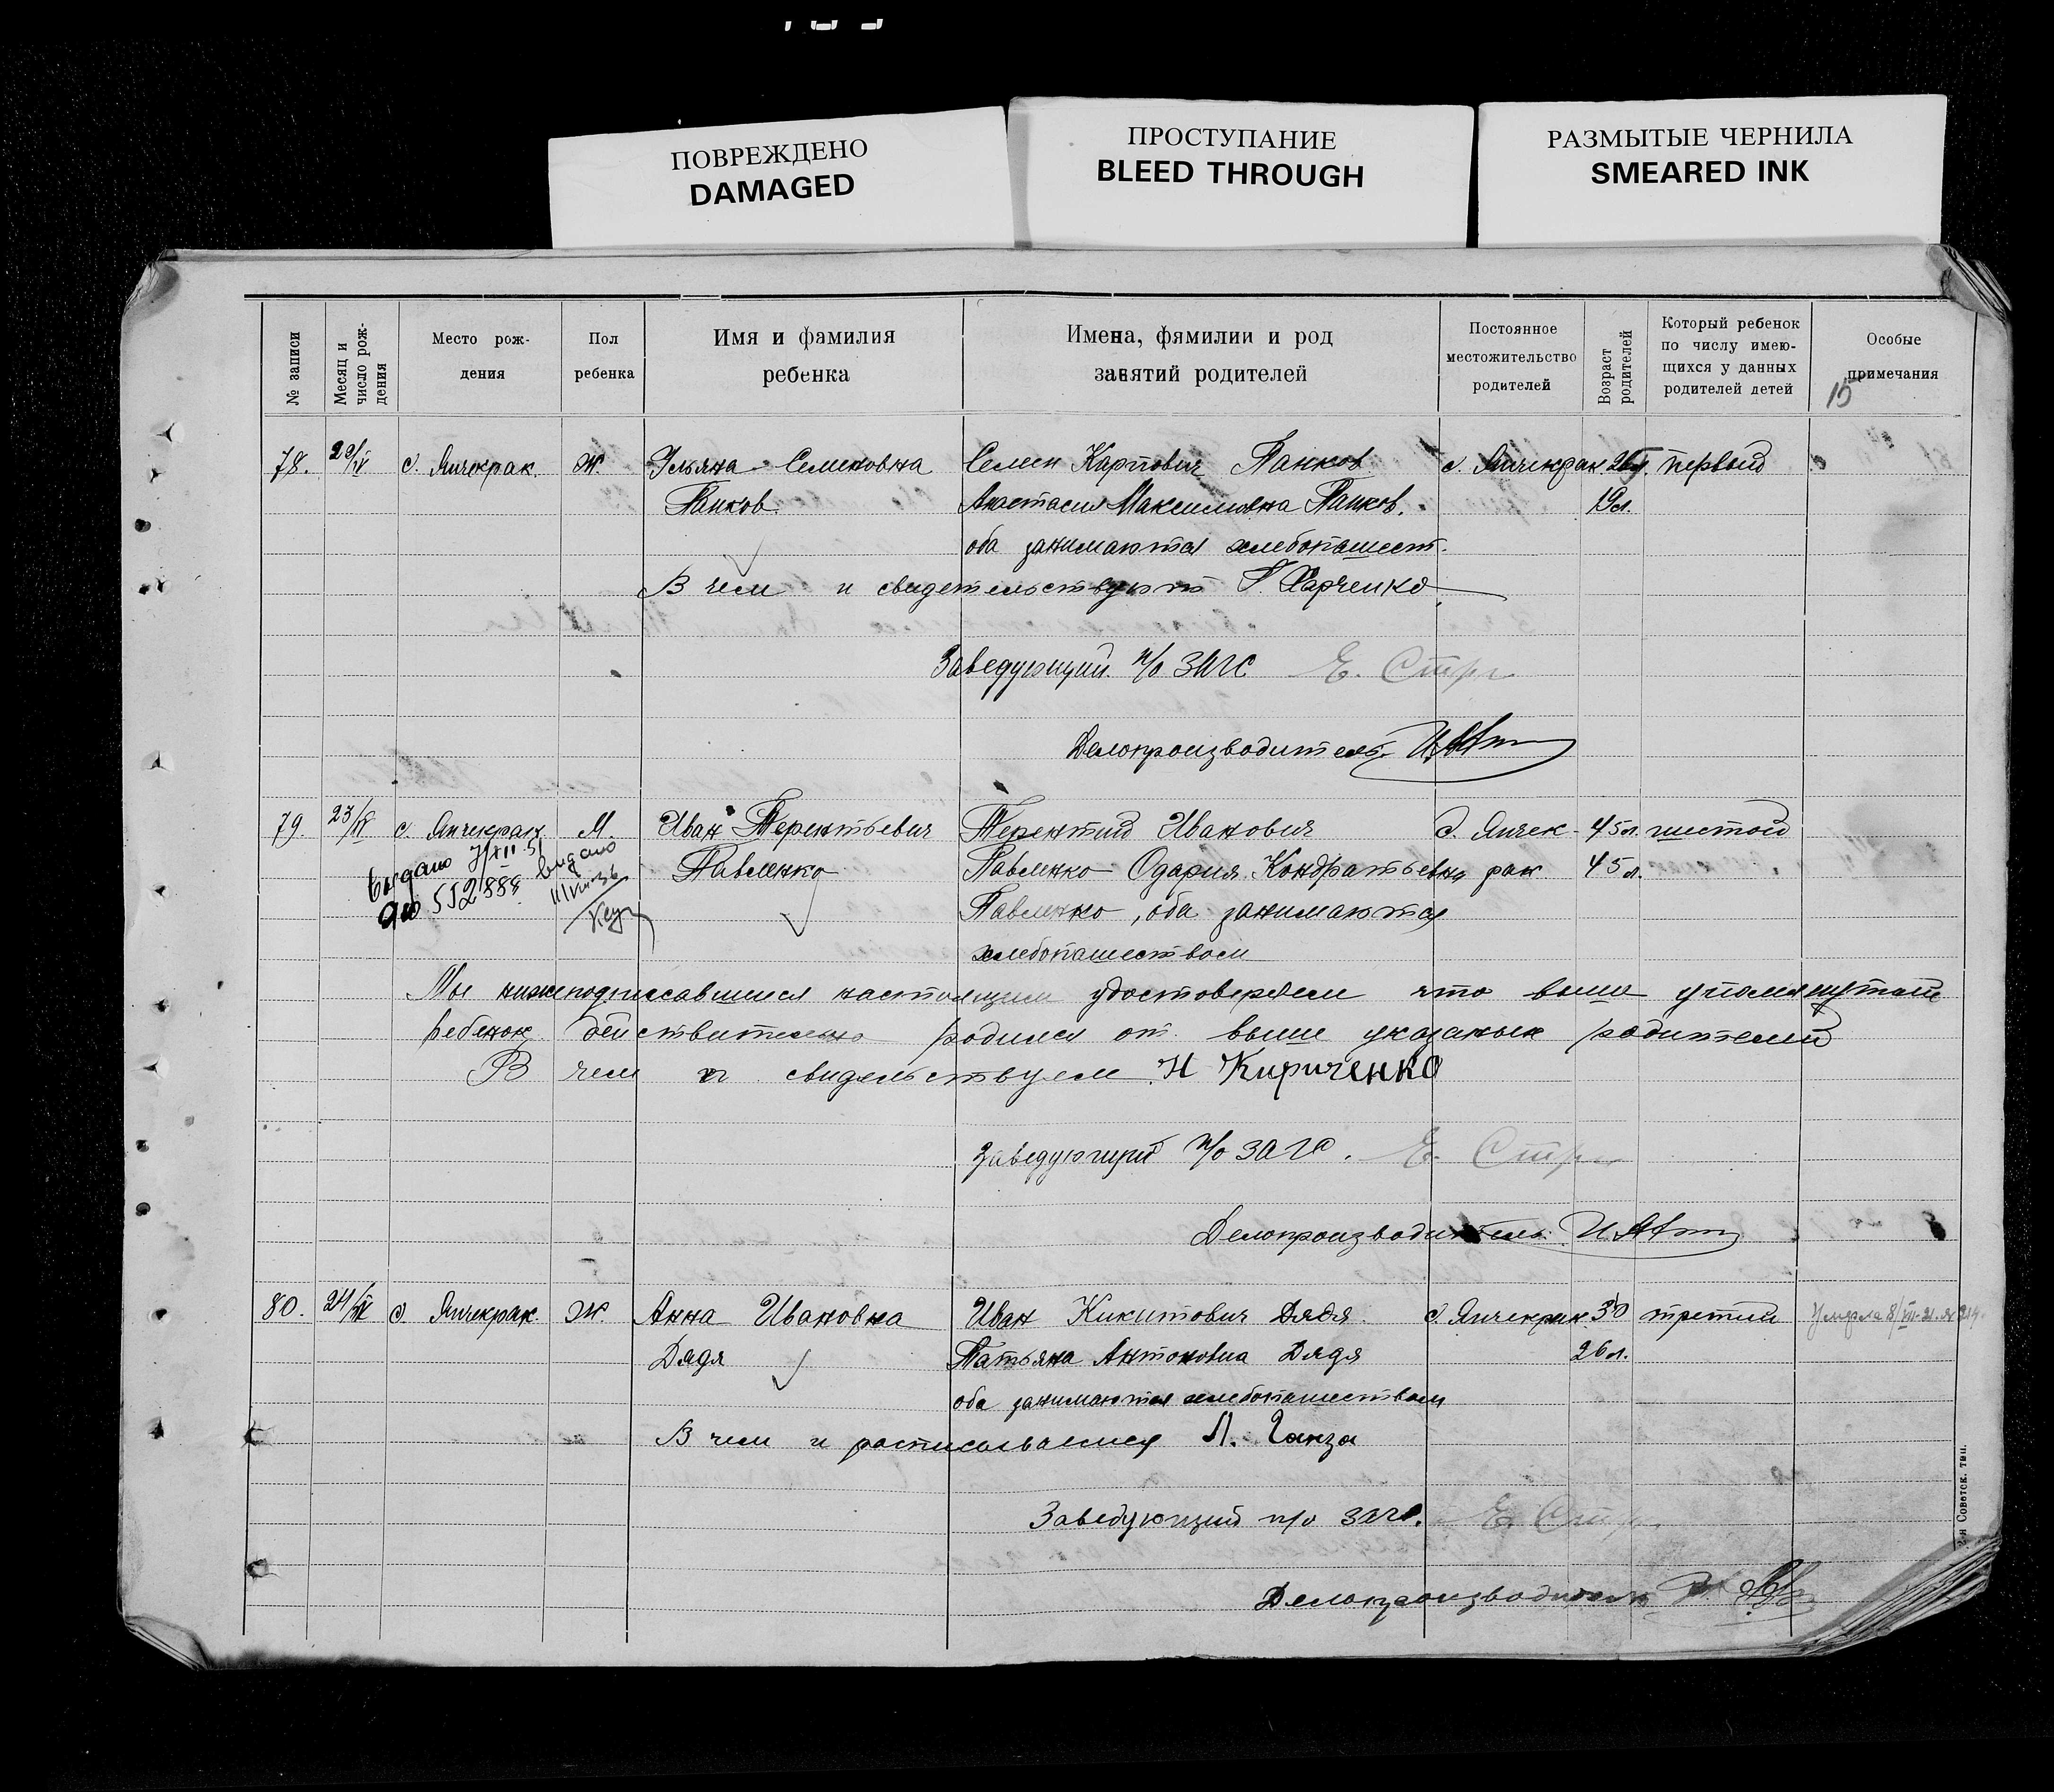 ПОВРЕЖДЕНО
DAMAGED
ПРОСТУПАНИЕ
BLEED THROUGH
РАЗМЫТЫЕ ЧЕРНИЛА
SMEARED INK
№ записи
Месяц и число рождения
Место рож-
дения
Пол
ребенка
Имя и фамилия
ребенка
Имена, фямилии и род
занятий родителей
Постоянное
местожительство
родителей
Возраст
родителей
Который ребенок
по числу имею-
щихся у данных
родителей детей
Особые
примечания
15
78. с. Янчекрак. Ж. Ульяна Семеновна Семен Карпович Панков с. Янчекрак первый
Панков. Анастасия Максимовна Панков. 19л.
оба занимаются хлебопашест.
В чем и свидетельствуют Харченко
Заведующий п/о ЗАГС Е.
Делопроизводитель
79 23/ с. Янчекрак. М. Иван Терентьевич Терентий Иванович с. Янчек- 45л. шестой
Павленко Павленко Одария Кондратьевна рак 45л.
Выдано
552888
выдано
Павленко, оба занимаются
хлебопашеством
Мы нижеподписавшиеся настоящим удостоверяем что выше упомянутый
ребенок действительно родился от выше указаных родителей
В чем и свидельствуем. Н Кириченко
Заведующий п/о ЗАГС. Е.
Делопроизводитель.
80. 24/ с. Янчекрак. Ж. Анна Ивановна Иван Никитович Дядя. с. Янчекрак 30 третий Умерла
Дядя Татьяна Антоновна Дядя 26л.
оба занимаются хлебопашеством
В чем и расписываемся Ганза
Заведующий п/о загс. Е.
Делопроизводитель
2-я Советск. тип.